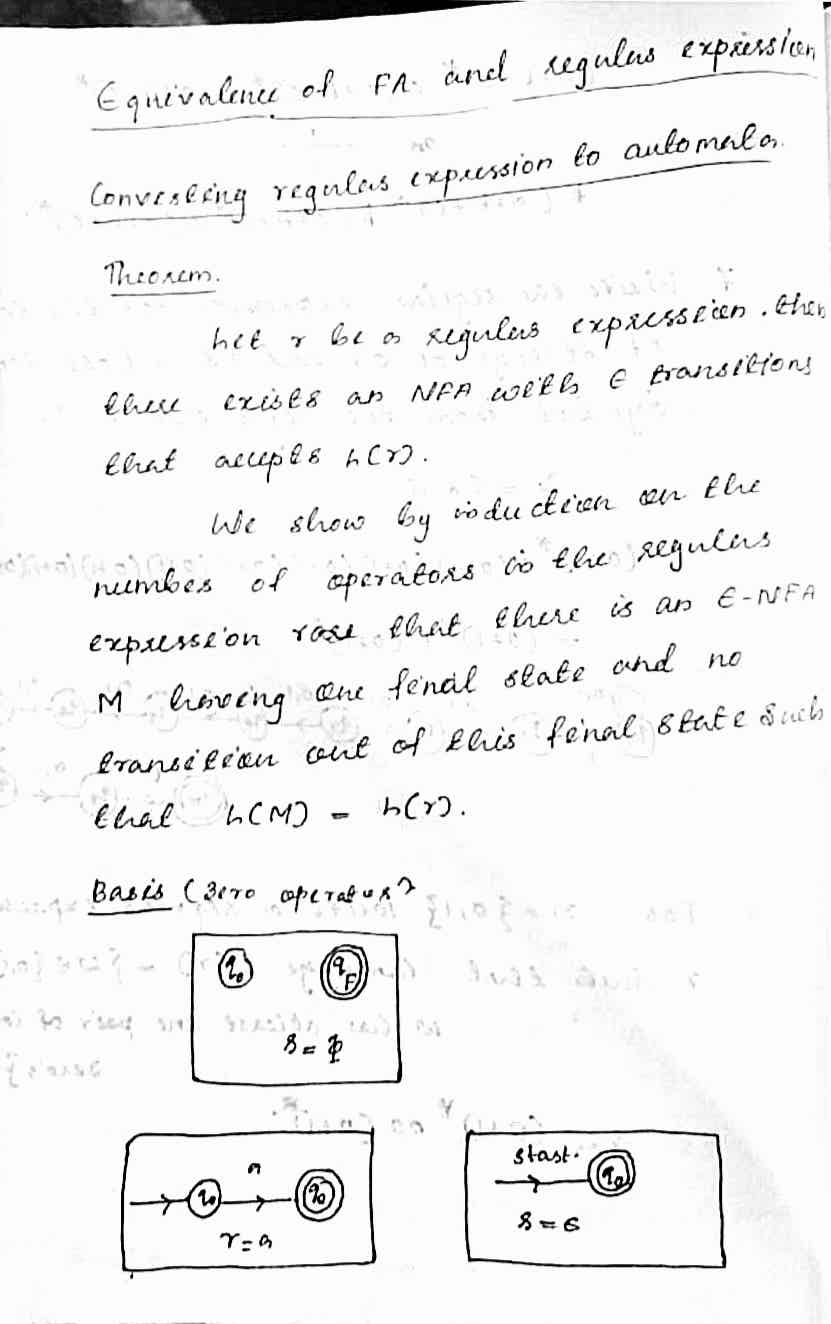 Equivalence of FA and regular expression
Converting regular expression to automata.
Theorem.
Let r be a regular expression. then
there exists an NFA with ∈ transitions
that accepts L(r).
We show by induction on the
number of operators in the regular
expression that there is an ∈-NFA
M having one final state and no
transition out of this final state such
that L(M) = L(r).
Basis (Zero operators)
q0 qF
r = φ
a
q0 q0
r = a
start.
q0
r = ∈